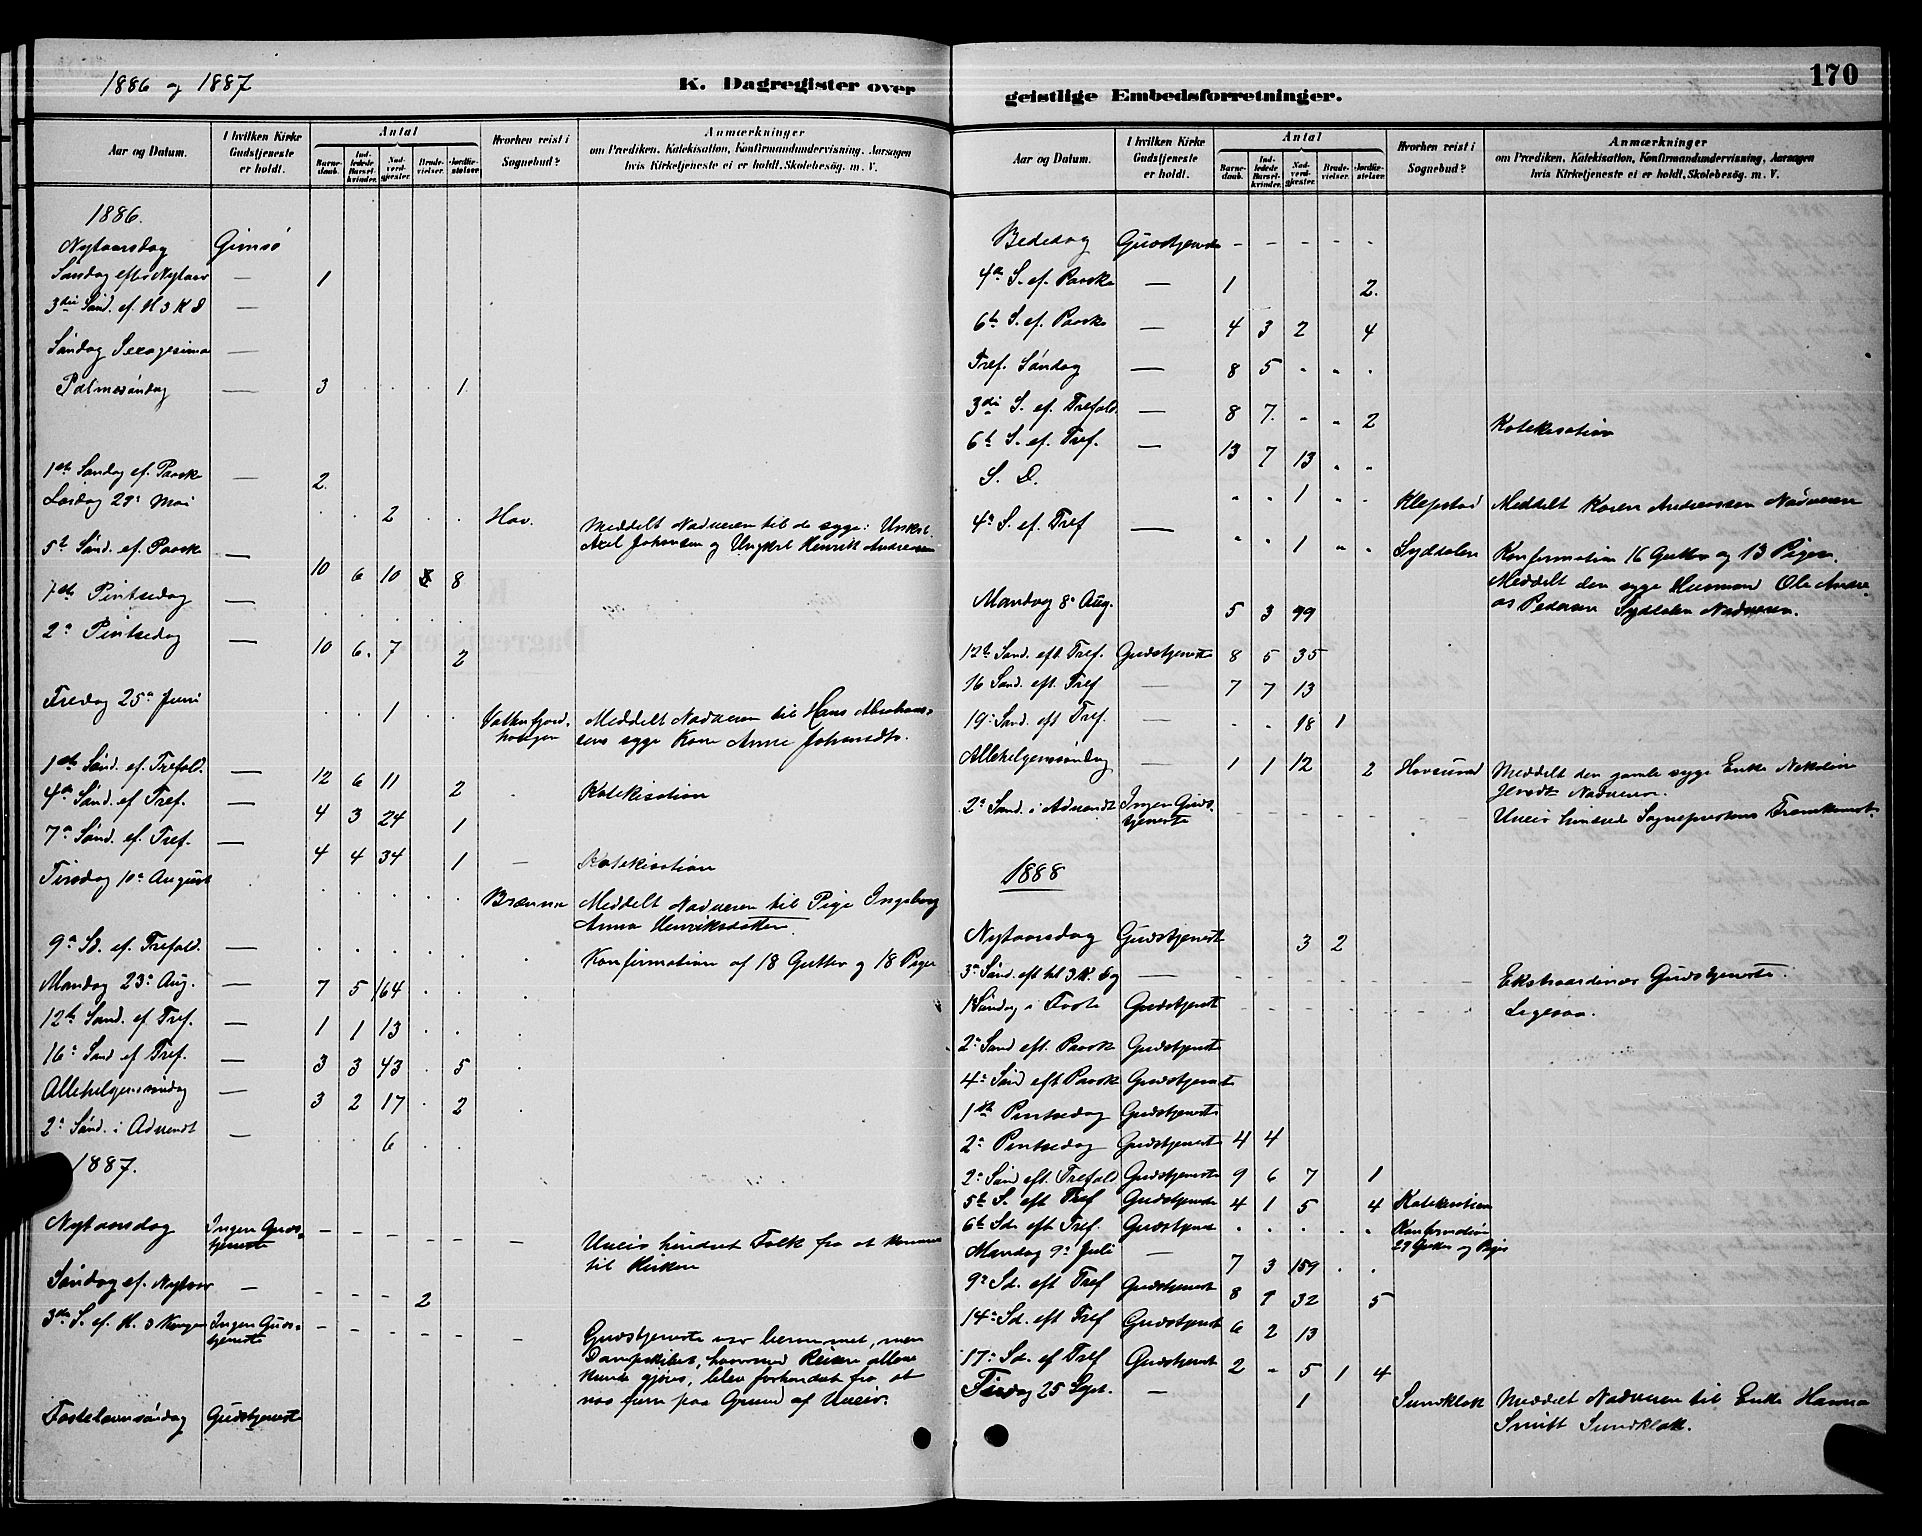 1886 og 1887
K. Dagregister over
Aar og Datum. | I hvilken Kirke Gudstjeneste er holdt. | Antal | Barnedaab. | Indledede Barselkvinder. | Nadverdgjester. | Brudevielser. | Jordfæstelser. | Hvorhen reist i Sognebud? | Anmærkninger om Prædiken, Katekisation, Konfirmandundervisning, Aarsagen hvis Kirketjeneste ei er holdt. Skolebesøg. m. V.
1886.
Nytaarsdag Gimsø
Søndag efter Nytaar — 1
3die Sønd. ef. H 3 K D —
Søndag Sexagesima —
Palmesøndag — 3 . . . . 1
1ste Søndag ef. Paaske — 2
Lørdag 29de Mai . . 2 . . Hov. Meddelt Nadveren til de syge: Unkrl.
Axel Johansen og Ungkrl Henrik Andreassen
5te Sønd. ef. Paaske — 10 6 10 8
1ste Pintsedag — . . . . .
2n Pintsedag — 10 6. 7 2
Fredag 25de Juni . . 1 . . Vatterfjord- Meddelt Nadveren til Hans Abraham-
haugen sens syge Kone Anne Johansdtr.
1ste Sønd. ef. Trefold. — 12 6 11 2 . Katekisation
4de Sønd. ef Tref. — 4 3 24 1
7de Sønd. ef Tref. — 4 4 34 1 — Katekisation
Tirsdag 10de August . . . . . Brænna Meddelt Nadveren til Pige Ingeborg
Anna Henriksdatter.
9de Sd. ef. Trefold. — . . . . . Konfirmation af 18 Gutter og 18 Piger
Mandag 23de Aug. — 7 5 164 . . .
12te Sønd. ef Tref. — 1 1 13 . .
16de Sønd ef Tref. — 3 3 43 . 5 .
Allehelgenssøndag — 3 2 17 . 2 .
2den Sønd. i Advendt — . . 6 . .
1887.
Nytaarsdag Ingen Guds- – – – – – — Uveir hindret Folk fra at komme
tjeneste til Kirken
Søndag ef. Nytaar — – – – 2
3die S. ef. H. 3 Konger Ingen Guds- – – – – – — Gudstjeneste var berammet, men
tjeneste Dampskibet, hvormed Reisen allene
kunde gjøres, blev forhindret fra at
naa frem paa Grund af Uveir.
Fastelavnssøndag Gudstjeneste
170
geistlige Embedsforretninger.
Aar og Datum. | I hvilken Kirke Gudstjeneste er holdt. | Antal | Barnedaab. | Indledede Barselkvinder. | Nadverdgjester. | Brudevielser. | Jordfæstelser. | Hvorhen reist i Sognebud? | Anmærkninger om Prædiken, Katekisation, Konfirmandundervisning, Aarsagen hvis Kirketjeneste ei er holdt, Skolebesøg. m. V.
Bededag Gudstjeneste – – – – –
4de S. ef. Paaske — 1 2.
6te S. ef. Paaske — 4 3 2 4
Tref. Søndag — 8 5 . . .
3die S. ef. Trefold. — 8 7 . . 2 Katekisation
6te S. ef. Tref. — 13 7 13 . .
S. D. . . 1 . . Klepstad Meddelt Karen Andreassen Nadveren
4de S. ef. Tref — . . 1 . . Sydtalen Konfirmation 16 Gutter og 13 Piger.
Meddelt den syge Husmand Ole Andre-
as Pedersen Sydtalen Nadveren.
Mandag 8de Aug. 5 3 99
12te Sønd. eft. Tref. Gudstjeneste 8 5 35
16 Sønd. eft. Tref — 7 7 13
19de Sønd. eft Tref. — . . 18 1
Allehelgenssøndag — 1 1 12 2 Hovsund Meddelt den gamle syge Enke Nikoline
Jensdtr Nadveren.
2den Sønd. i Advendt Ingen Guds- – – – – – – Uveir hindrede Sognepresten Fremkomst.
tjeneste
1888
Nytaarsdag Gudstjeneste 3 2
3die Sønd. eft hl 3 K Dag — – – – – – – Ekstraordinær Gudstjeneste.
1 Søndag i Faste Gudstjeneste – – – – – – Ligesaa.
2den Sønd eft. Paaske Gudstjeneste
4de Sønd eft Paaske Gudstjeneste
1ste Pintsedag Gudstjeneste
2den Pintsedag Gudstjeneste 4 4
2den Sønd eft. Trefold Gudstjeneste 9 6 7 1
5te S. eft Tref Gudstjeneste 4 1 5 4 Katekisation
6te Sd. eft Tref. Gudstjeneste . . . . . Konfirmation
29 Gutter og Piger
Mandag 9de Juli — 7 3 159 . .
9de Sd. eft Tref Gudstjeneste 8 7 32 5
14de Sd. eft Tref Gudstjeneste 6 2 13
17de Sd. ef Tref Gudstjeneste 2 – 5 1 4
Tirsdag 25 Sept. — 1 Sundklak Meddelt Nadveren til Enke Hanna
Smitt Sundklak.